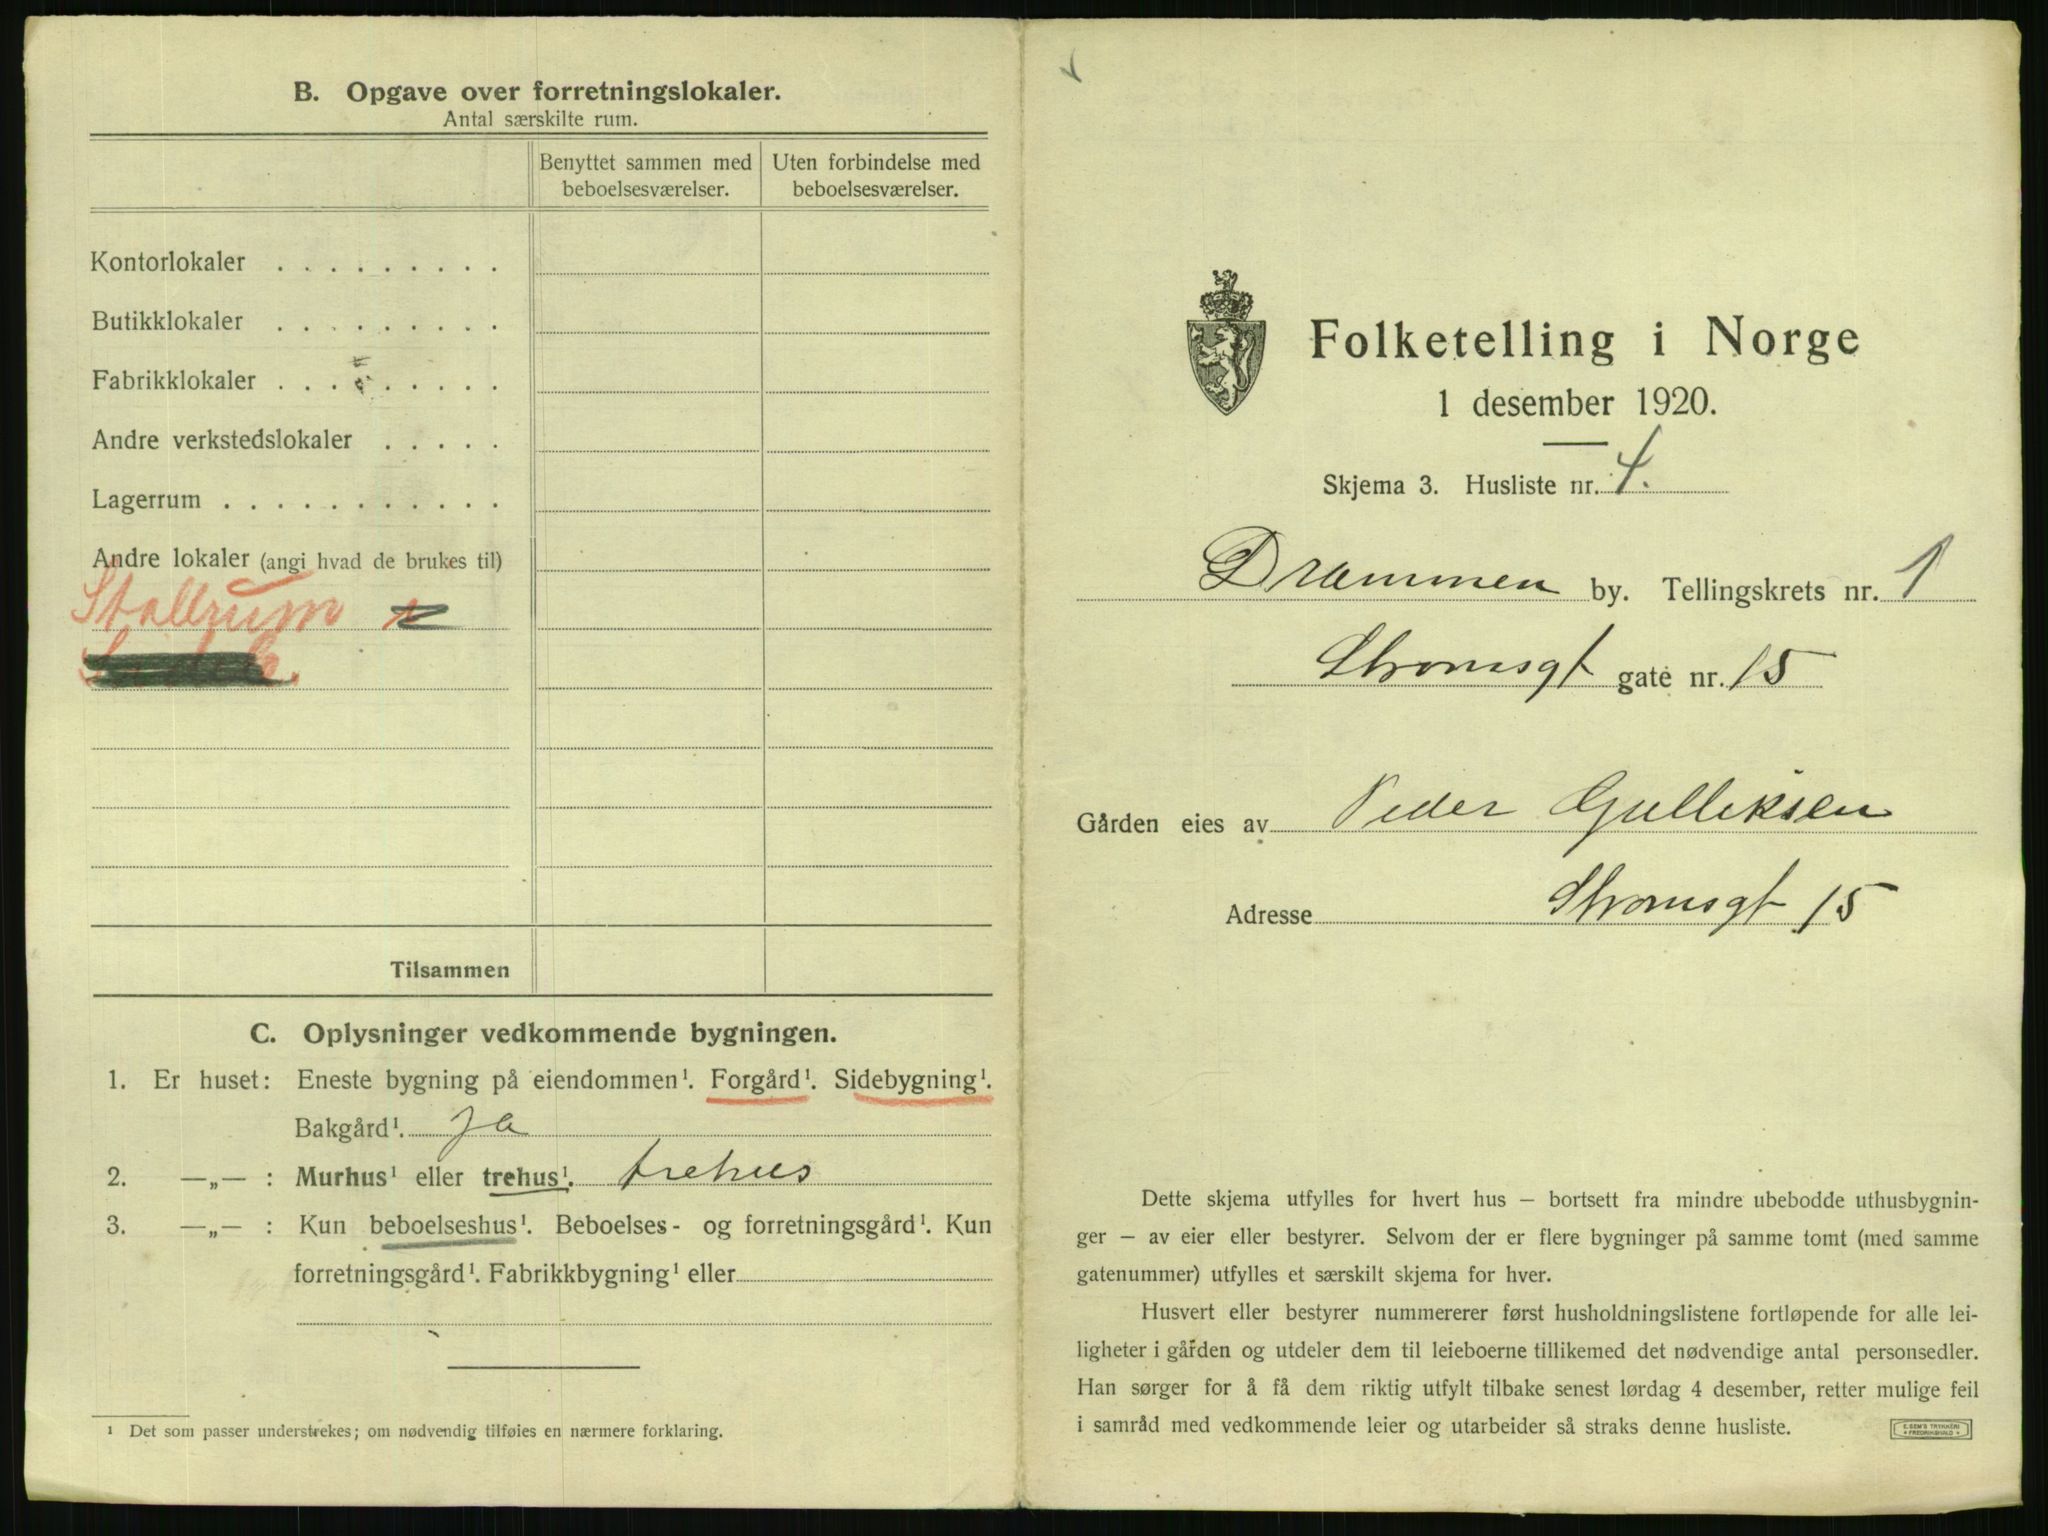 B. Opgave over forretningslokaler.
Antal særskilte rum.
Benyttet sammen med beboelsesværelser.
Uten forbindelse med beboelsesværelser.
Kontorlokaler . . . . . . . . .
Butikklokaler . . . . . . . . .
Fabrikklokaler . . . . . . . . .
Andre verkstedslokaler . . . . .
Lagerrum . . . . . . . . . . .
Andre lokaler (angi hvad de brukes til)
Stallrum
Tilsammen
C. Oplysninger vedkommende bygningen.
1. Er huset: Eneste bygning på eiendommen¹. Forgård¹. Sidebygning¹.
Bakgård¹. Ja
2. —„— : Murhus¹ eller trehus¹. trehus
3. —„— : Kun beboelseshus¹. Beboelses- og forretningsgård¹. Kun
forretningsgård¹. Fabrikkbygning¹ eller
¹ Det som passer understrekes; om nødvendig tilføies en nærmere forklaring.
Folketelling i Norge
1 desember 1920.
Skjema 3. Husliste nr. 4.
Drammen by. Tellingskrets nr. 1
Strømsgt gate nr. 15
Gården eies av Peder Gulliksen
Adresse Strømsgt 15
Dette skjema utfylles for hvert hus – bortsett fra mindre ubebodde uthusbygnin-
ger – av eier eller bestyrer. Selvom der er flere bygninger på samme tomt (med samme
gatenummer) utfylles et særskilt skjema for hver.
Husvert eller bestyrer nummererer først husholdningslistene fortløpende for alle lei-
ligheter i gården og utdeler dem til leieboerne tillikemed det nødvendige antal personsedler.
Han sørger for å få dem riktig utfylt tilbake senest lørdag 4 desember, retter mulige feil
i samråd med vedkommende leier og utarbeider så straks denne husliste.
E. SEM'S TRYKKERI
• FREDRIKSHALD •